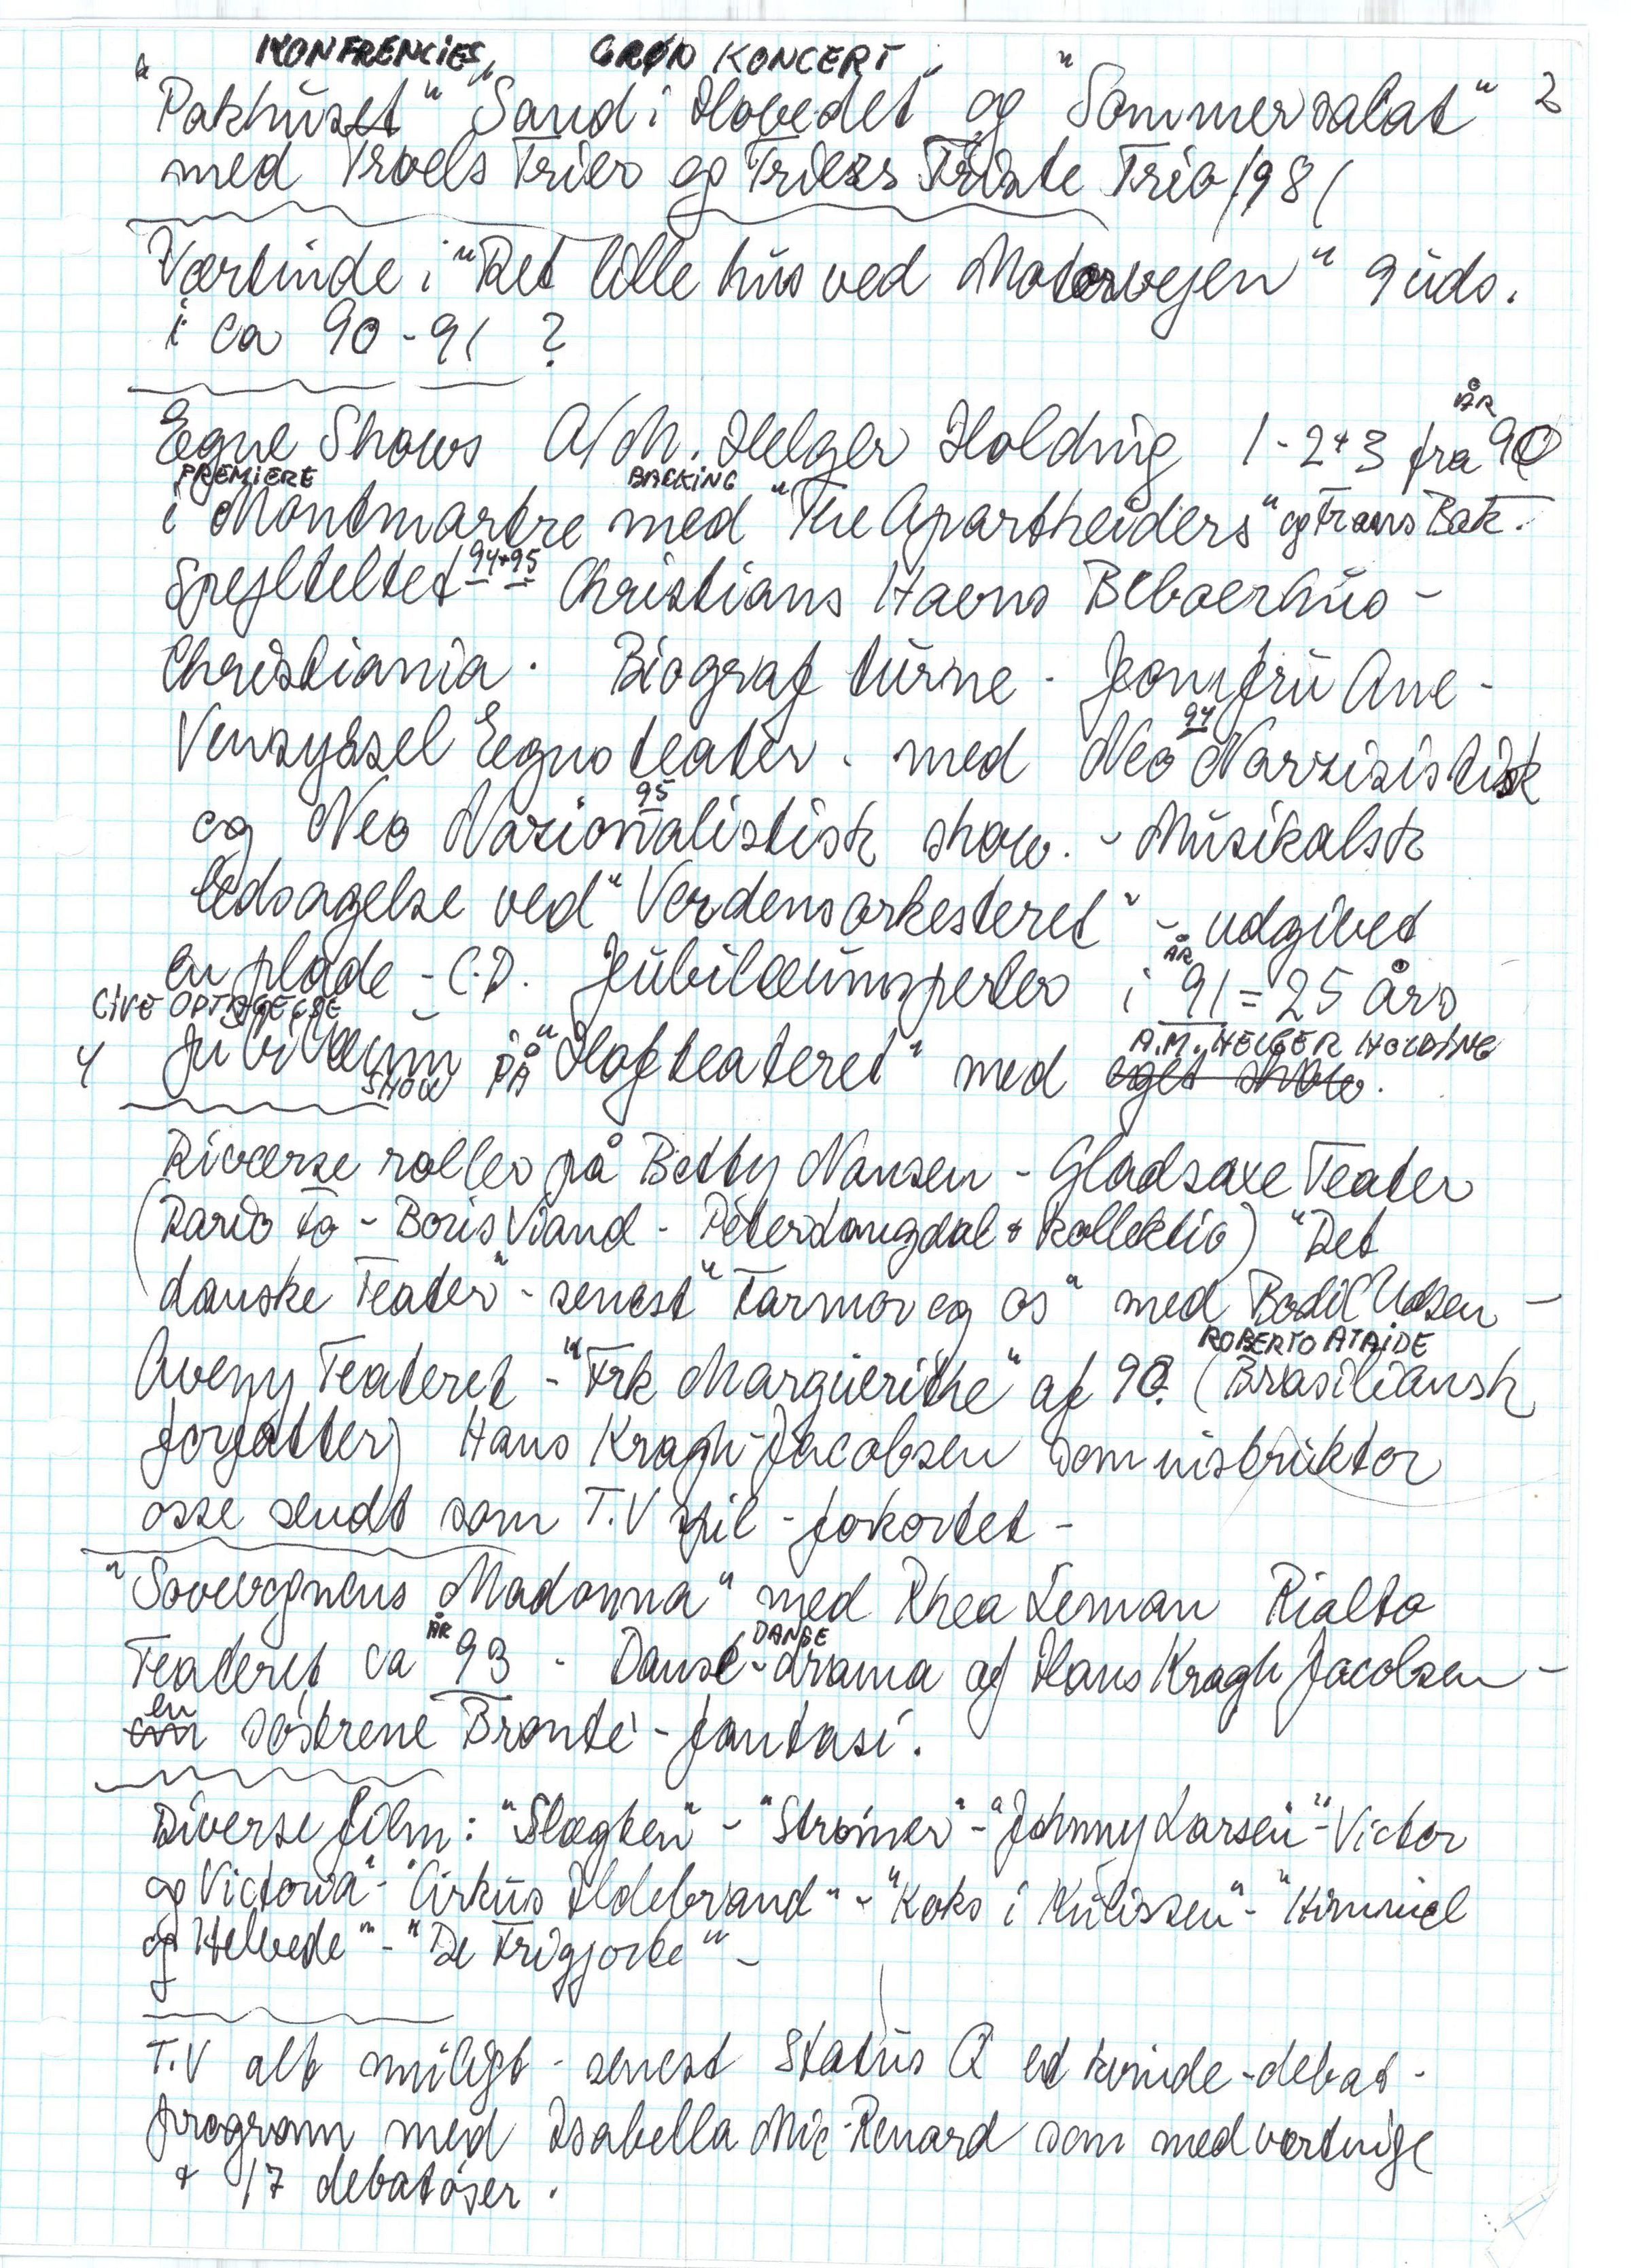 KONFRENCIES, GRØN KONCERT
"Pakhuset" "Sand i Hovedet" og "Sommersalat" 2
med Troels Trier og Triers Triste Trio 1981
Værtinde i "Det lille hus ved Motorvejen" 9 uds.
i ca 90-91 ?
ÅR
Egne Shows A/M. Helger Holding 1-2+3 fra 90
PREMIERE BACKING
i Montmartre med "The Apartheiders" og Frans Bak.
94+95
Spejlteltet Christians Havns Beboerhus -
Christiania. Biograf turne - Jomfru Ane -
94
Vensyssel Egnsteater. med Neo Narzisistisk
95
og Neo Nazionalistisk show. - Musikalsk
ledsagelse ved "Verdensorkesteret" - udgivet
ÅR
en plade - C.D. Jubilæumsperler i 91 = 25 års
LIVE OPTAGELSE
A.M. HELGER HOLDING
Jubilæum SHOW PÅ "Hofteateret" med eget show.
Diverse roller på Betty Nansen - Gladsaxe Teater
(Dario Fo - Boris Viand - Peter Langdal + kollektiv) "Det
danske Teater" - senest "Farmor og os" med Bodil Udsen -
ROBERTO ATAIDE
Aveny Teateret - "Frk Marguerithe" af 90. (Brasiliansk
forfatter) Hans Kragh-Jacobsen som instruktør
osse sendt som T.V spil - forkortet -
"Sovevognens Madonna" med Rhea Leman Rialto
ÅR DANSE
Teateret ca 93 - Danse-drama af Hans Kragh Jacobsen -
en søstrene Brontë - fantasi.
Diverse film: "Slægten" - "Strømer" - "Johnny Larsen" - Victor
og Victoria" - "Cirkus Ildebrand" - "Koks i Kulissen" - "Himmel
og Helvede" - "De Frigjorte" -
T.V alt muligt - senest Status Q et kvinde-debat -
program med Isabella Mie-Renard som medværtinge
+ 17 debatøser.